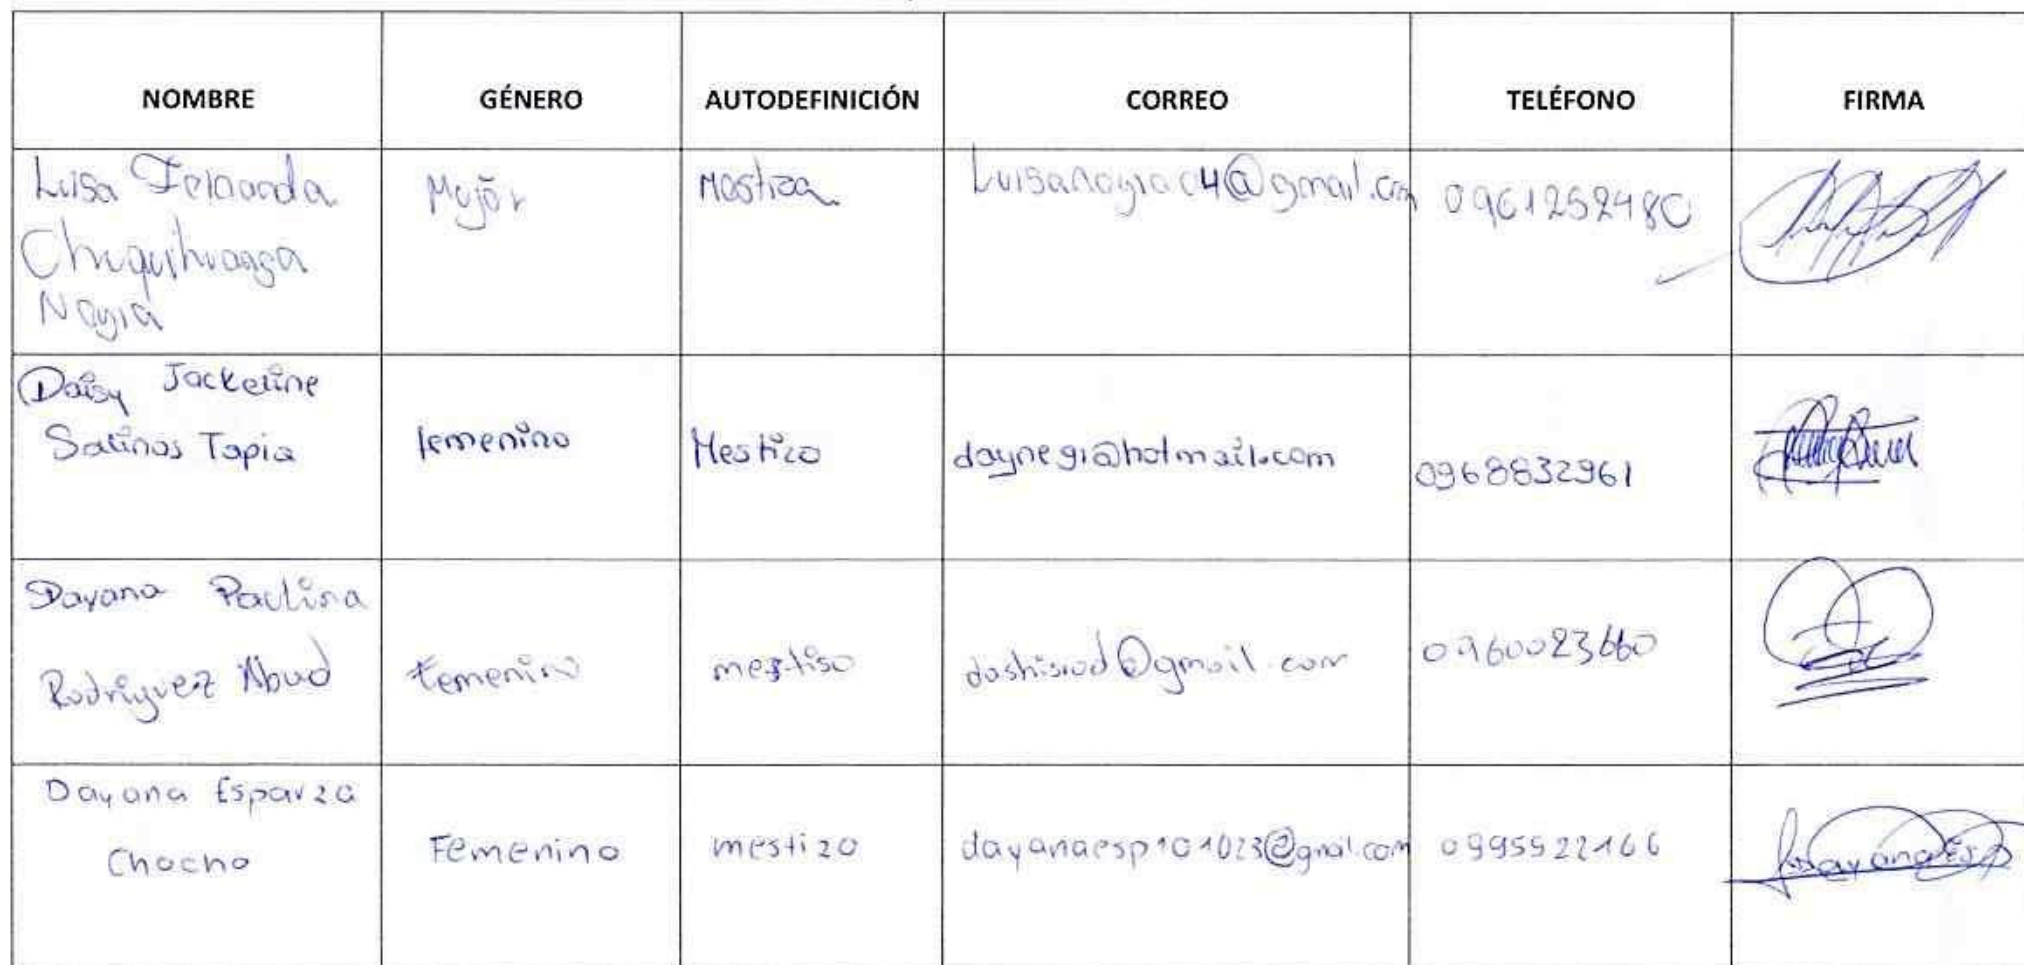 NOMBRE GÉNERO AUTODEFINICIÓN CORREO TELÉFONO FIRMA
Luisa Fernanda
Chuquihuanga
Nagua
Mujer
Mestiza
0961252480
Daisy Jackeline
Salinas Tapia
femenino
Mestizo
daynegi@hotmail.com
0968832961
Dayana Paulina
Rodriguez Abud
femenino
mestiso
dashisrod@gmail.com
0960023660
Dayana Esparza
Chocho
Femenino
mestizo
dayanaesp101023@gmail.com
0995522166